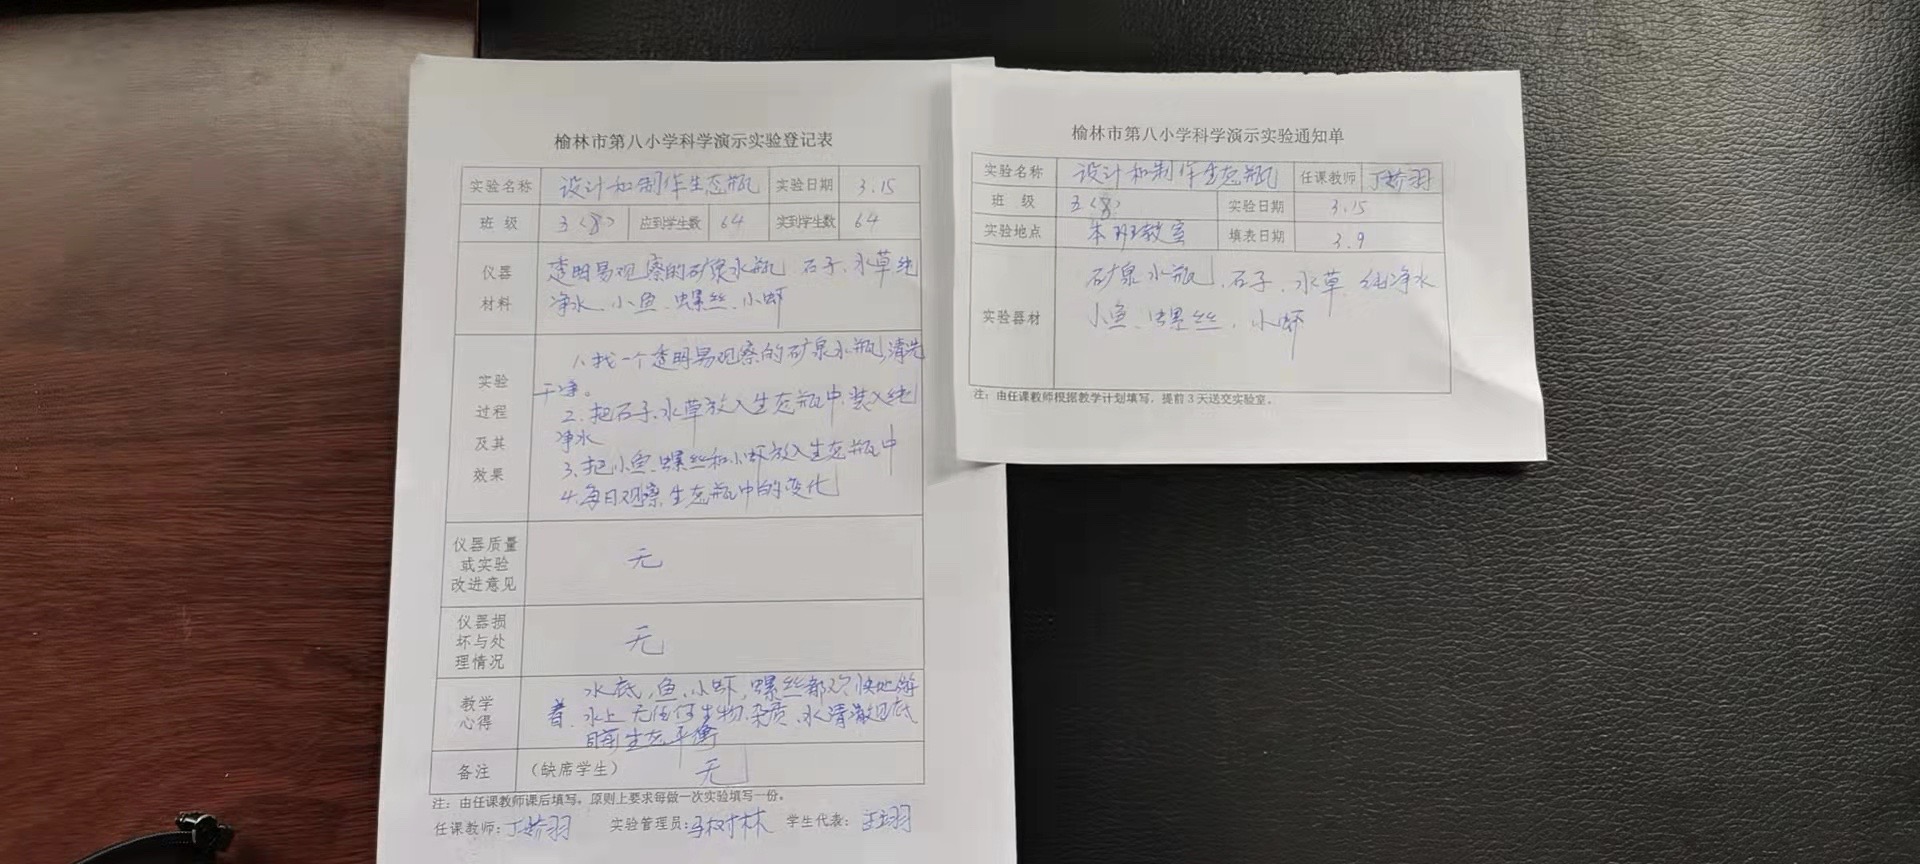 榆林市第八小学科学演示实验登记表
实验名称 设计和制作生态瓶 实验日期 3.15
班 级 五(8) 应到学生数 64 实到学生数 64
仪器材料 透明易观察的矿泉水瓶、石子、水草纯
净水、小鱼、螺丝、小虾
实验过程及其效果 1、找一个透明易观察的矿泉水瓶,清洗
干净。
2、把石子、水草放入生态瓶中,装入纯
净水
3、把小鱼、螺丝和小虾放入生态瓶中
4、每日观察生态瓶中的变化
仪器质量或实验改进意见 无
仪器损坏与处理情况 无
教学心得 水底,鱼、小虾,螺丝都欢快地游
着、水上无任何生物、杂质、水清澈见底
目前生态平衡
备注 (缺席学生) 无
注:由任课教师课后填写,原则上要求每做一次实验填写一份。
任课教师:丁娇羽 实验管理员:马树林 学生代表:
榆林市第八小学科学演示实验通知单
实验名称 设计和制作生态瓶 任课教师 丁娇羽
班 级 五(8) 实验日期 3.15
实验地点 本班教室 填表日期 3.9
实验器材 矿泉水瓶、石子、水草、纯净水
小鱼、螺丝、小虾
注:由任课教师根据教学计划填写,提前3天送交实验室。